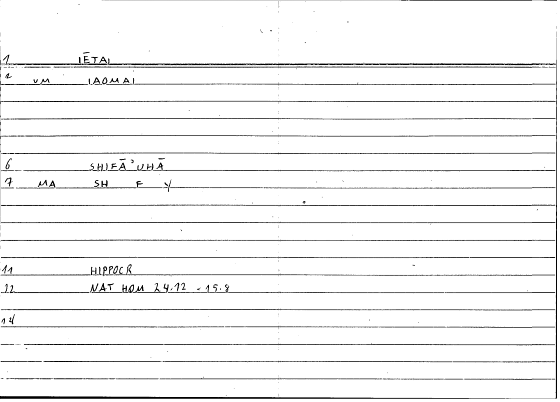 1 IĒTAI
2 VM IAOMAI
6 SHIFĀʾUHĀ
7 MA SH F Y
11 HIPPOCR
12 NAT HOM 24.12 - 15.8
14